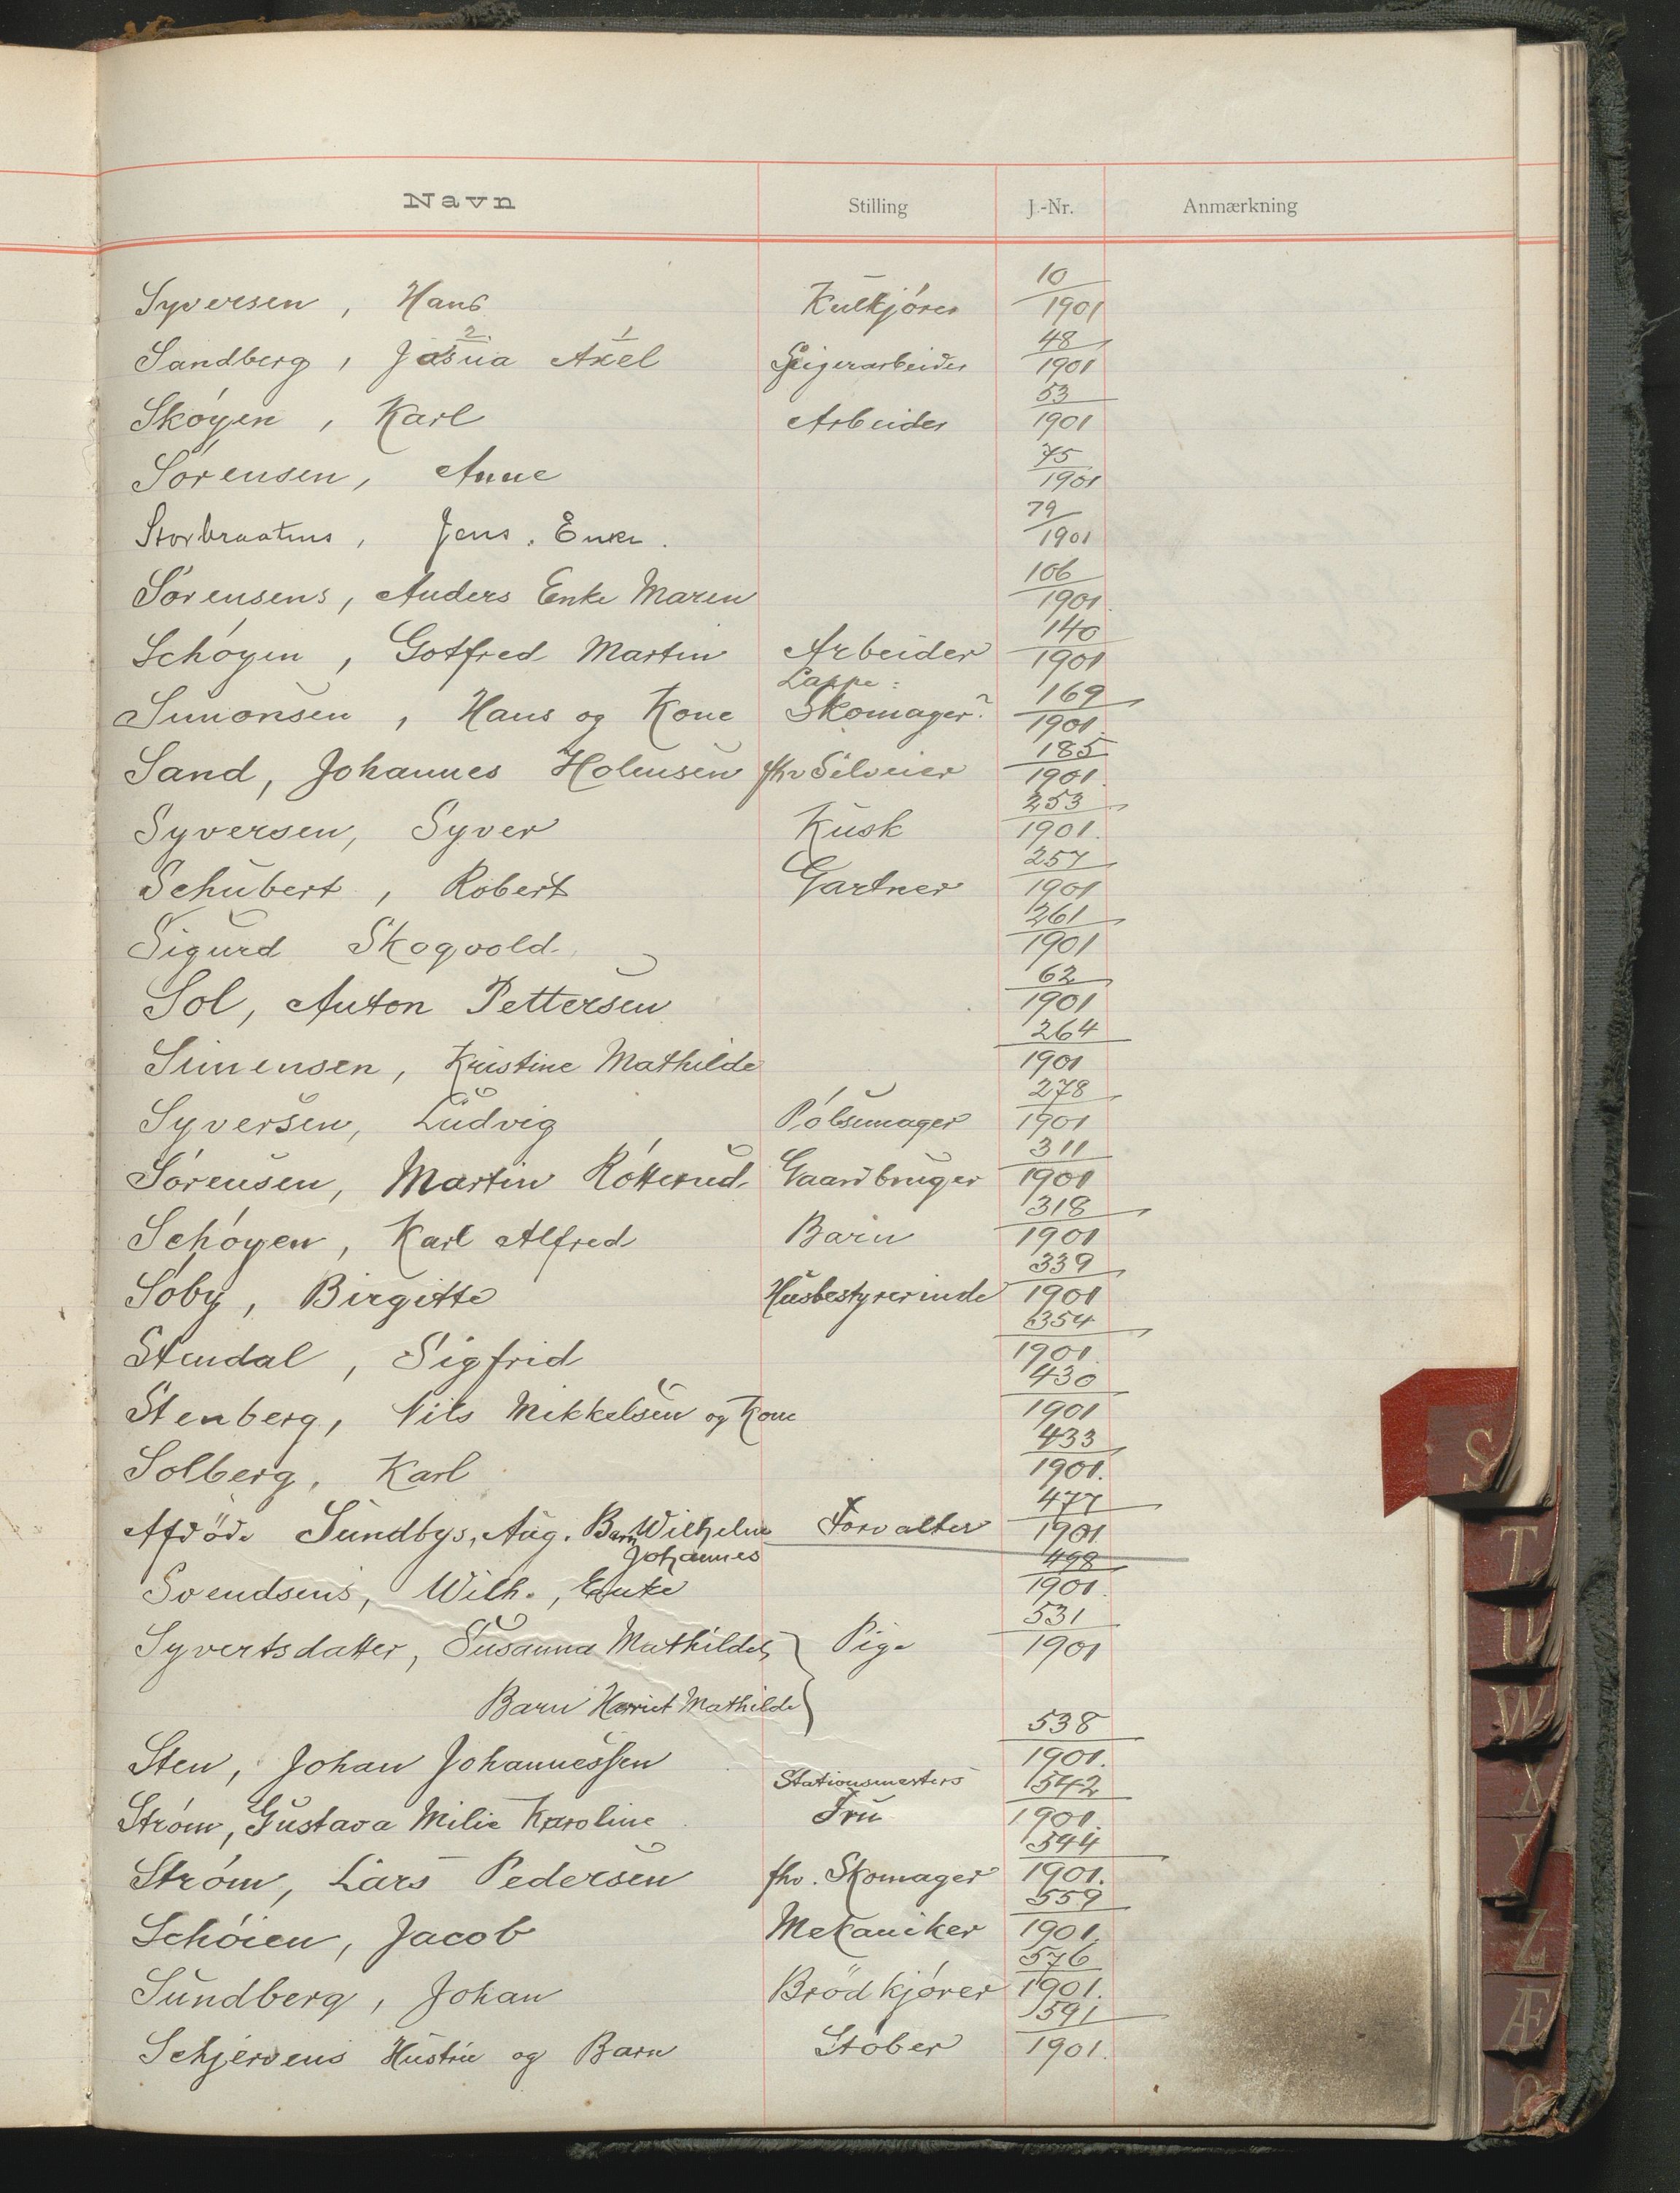 Navn Stilling J.-Nr. Anmærkning
Syversen, Hans Kulkjører 10/1901
Sandberg, Josua 2 Axel 1 Spigerarbeider 48/1901
Skøyen, Karl Arbeider 53/1901
Sørensen, Anne 75/1901
Storbraatens, Jens. Enke. 79/1901
Sørensens, Anders Enke Maren 106/1901.
Schøyen, Gotfred Martin Arbeider 140/1901
Simonsen, Hans og Kone Lappe: Skomager? 169/1901.
Sand, Johannes Holmsen fhv Selveier 185/1901.
Syversen, Syver Kusk 253/1901.
Schubert, Robert Gartner 257/1901
Sigurd Skogvold 261/1901
Sol, Anton Pettersen 62/1901
Simensen, Kristine Mathilde 264/1901
Syversen, Ludvig Pølsemager 278/1901
Sørensen, Martin Røtterud Gaardbruger 311/1901
Schøyen, Karl Alfred Barn 318/1901
Søby, Birgitte Husbestyrerinde 339/1901
Stendal, Sigfrid 354/1901.
Stenberg, Nils Mikkelsen og Kone 430/1901
Solberg, Karl 433/1901.
Afdøde Sundbys, Aug. Barn Wilhelm Johannes Forvalter 477/1901
Svendsens, Wilh., Enke 498/1901.
Syvertsdatter, Susanna Mathildes Pige 531/1901
Barn Harriet Mathilde
Sten, Johan Johannessen 538/1901.
Strøm, Gustava Milie Karoline Stationsmesters Fru 542/1901.
Strøm, Lars Pedersen fhv. Skomager 544/1901.
Schøien, Jacob Mekaniker 559/1901.
Sundberg, Johan Brødkjører 576/1901.
Schjervens Hustru og Barn Støber 591/1901.
S
T
U
W
X
Y
Z
Æ
Ø